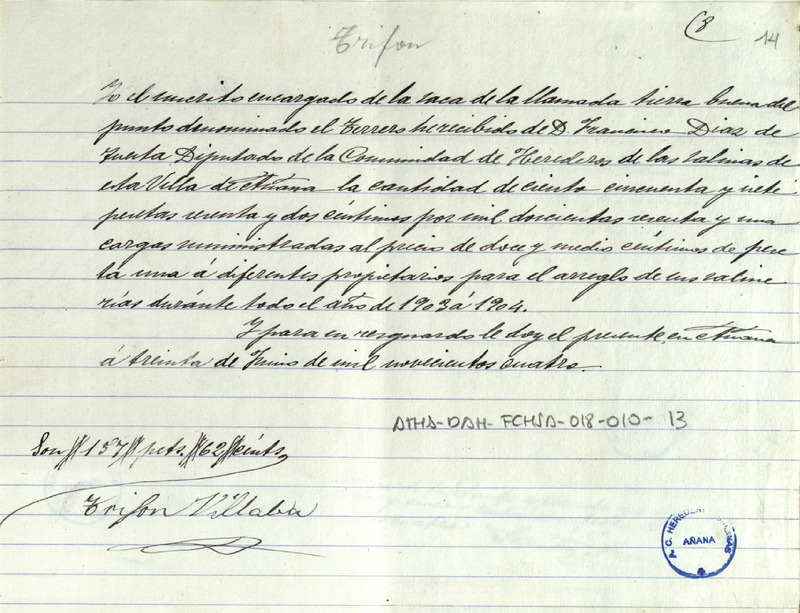 Trifon
C8
14
Yo el inscrito encargado de la saca de la llamada tierra buena del
punto denominado el Terrero he recibido de D. Francisco Diaz de
Tuesta Diputado de la Comunidad de Herederos de las Salinas de
esta Villa de Añana la cantidad de ciento cincuenta y siete
pesetas sesenta y dos céntimos por mil doscientas sesenta y una
cargas suministradas al precio de doce y medio céntimos de pese
ta una á diferentes propietarios para el arreglo de sus saline
rias durante todo el año de 1903 á 1904.
Y para su resguardo le doy el presente en Añana
á treinta de Junio de mil novecientos cuatro.
ATHA-DAH-FCHSA-018-010-13
Son 157 pets. 62 cénts.
Trifon Villalba
A. C. HEREDEROS SALINAS
AÑANA